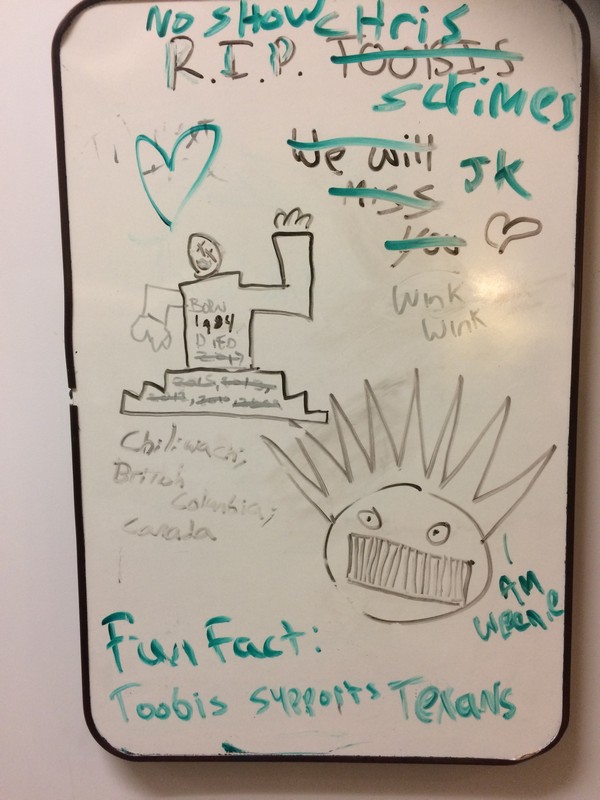 NO SHOW CHRIS
R.I.P. TOOBIS
SCRIMES
We will
MISS
YOU
JK
Wink
Wink
BORN
1984
DIED
2017
Chiliwack,
British
Columbia,
Canada
I
AM
WEENIE
Fun Fact:
Toobis supports Texans